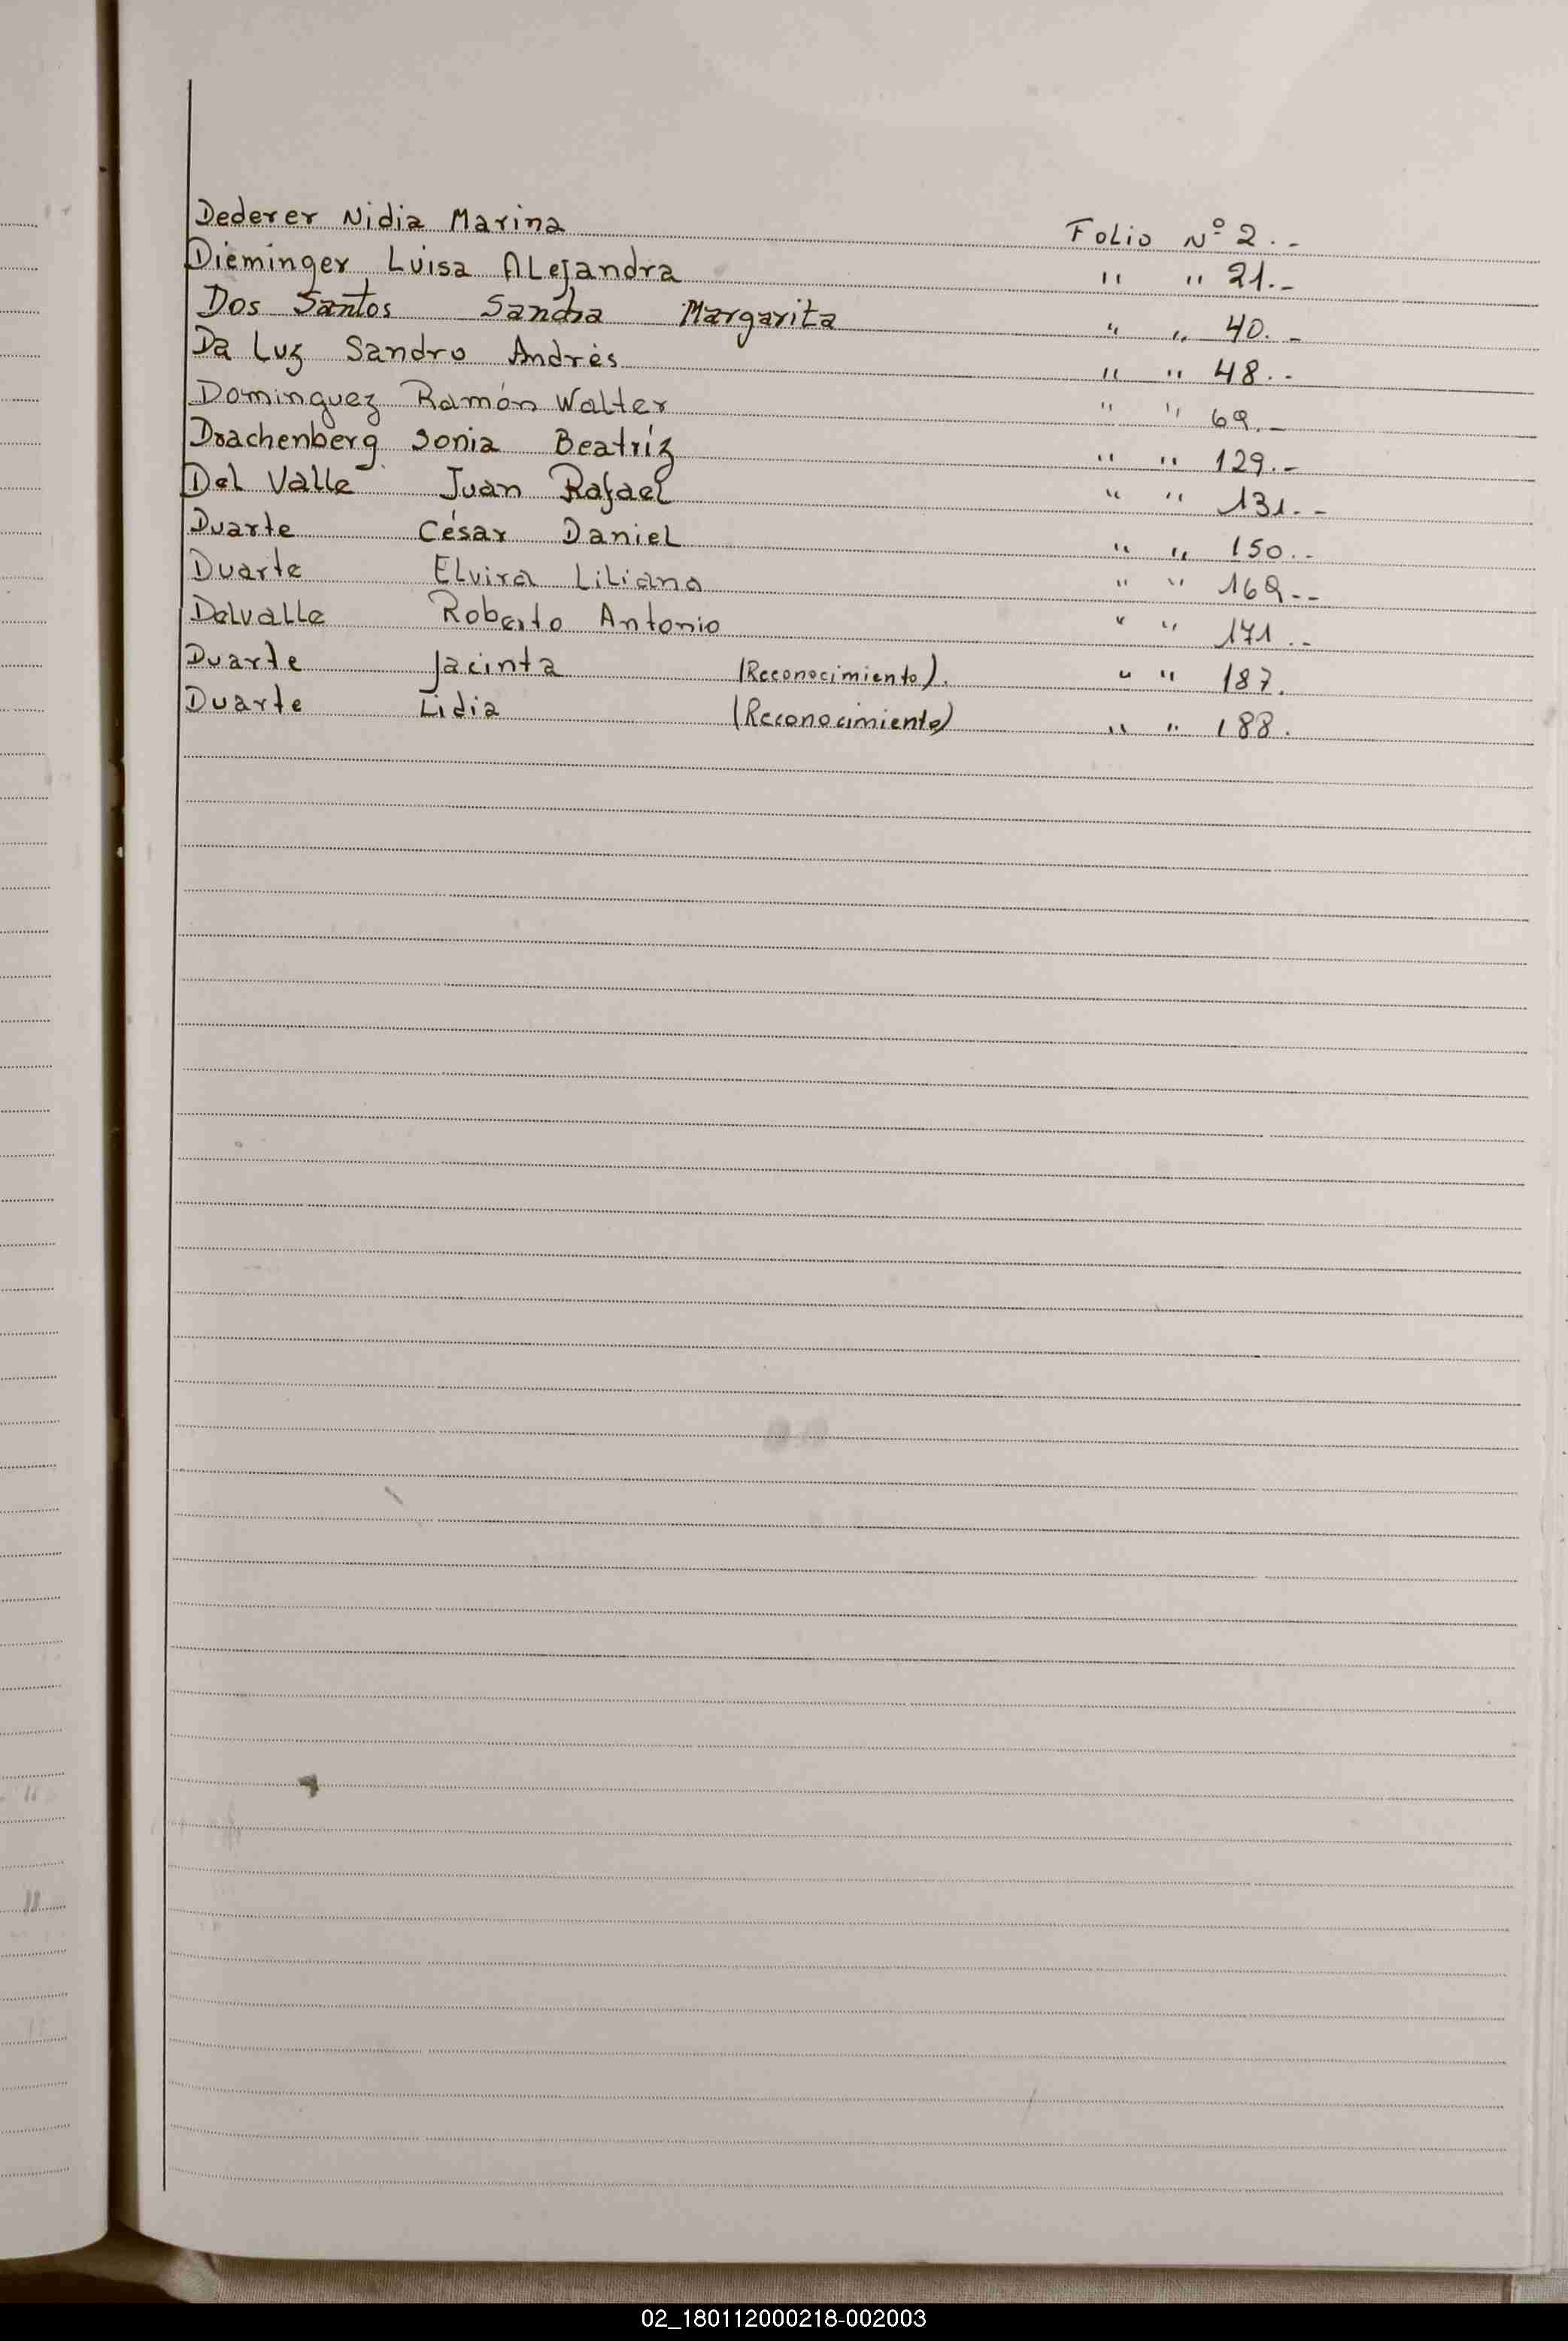 Dederer Nidia Marina Folio Nº 2.-
Dieminger Luisa Alejandra " " 21.-
Dos Santos Sandra Margarita " " 40.-
Da Luz Sandro Andrés " " 48.-
Dominguez Ramón Walter " " 69.-
Drachenberg Sonia Beatríz " " 129.-
Del Valle Juan Rafael " " 131.-
Duarte César Daniel " " 150.-
Duarte Elvira Liliana " " 169.-
Delvalle Roberto Antonio " " 171.-
Duarte Jacinta (Reconocimiento). " " 187.
Duarte Lidia (Reconocimiento) " " 188.
02_180112000218-002003